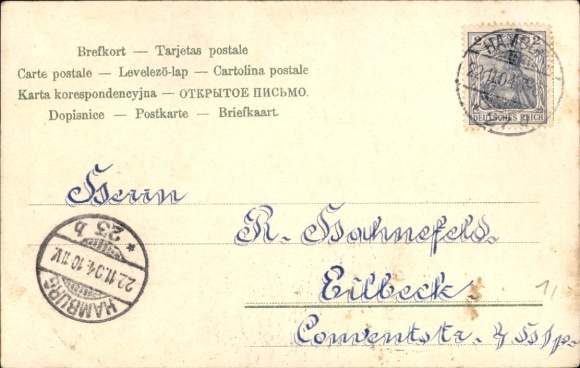 Brefkort — Tarjetas postale
Carte postale — Levelező-lap — Cartolina postale
Karta korespondencyjna — ОТКРЫТОЕ ПИСЬМО.
Dopisnice — Postkarte — Briefkaart.
2 2
HAMB
22.11.04
DEUTSCHES REICH
Herrn
R. Hahnefeld.
Eilbeck.
Conventstr.
HAMBURG
22.11.04. 10-11V.
* 23 b